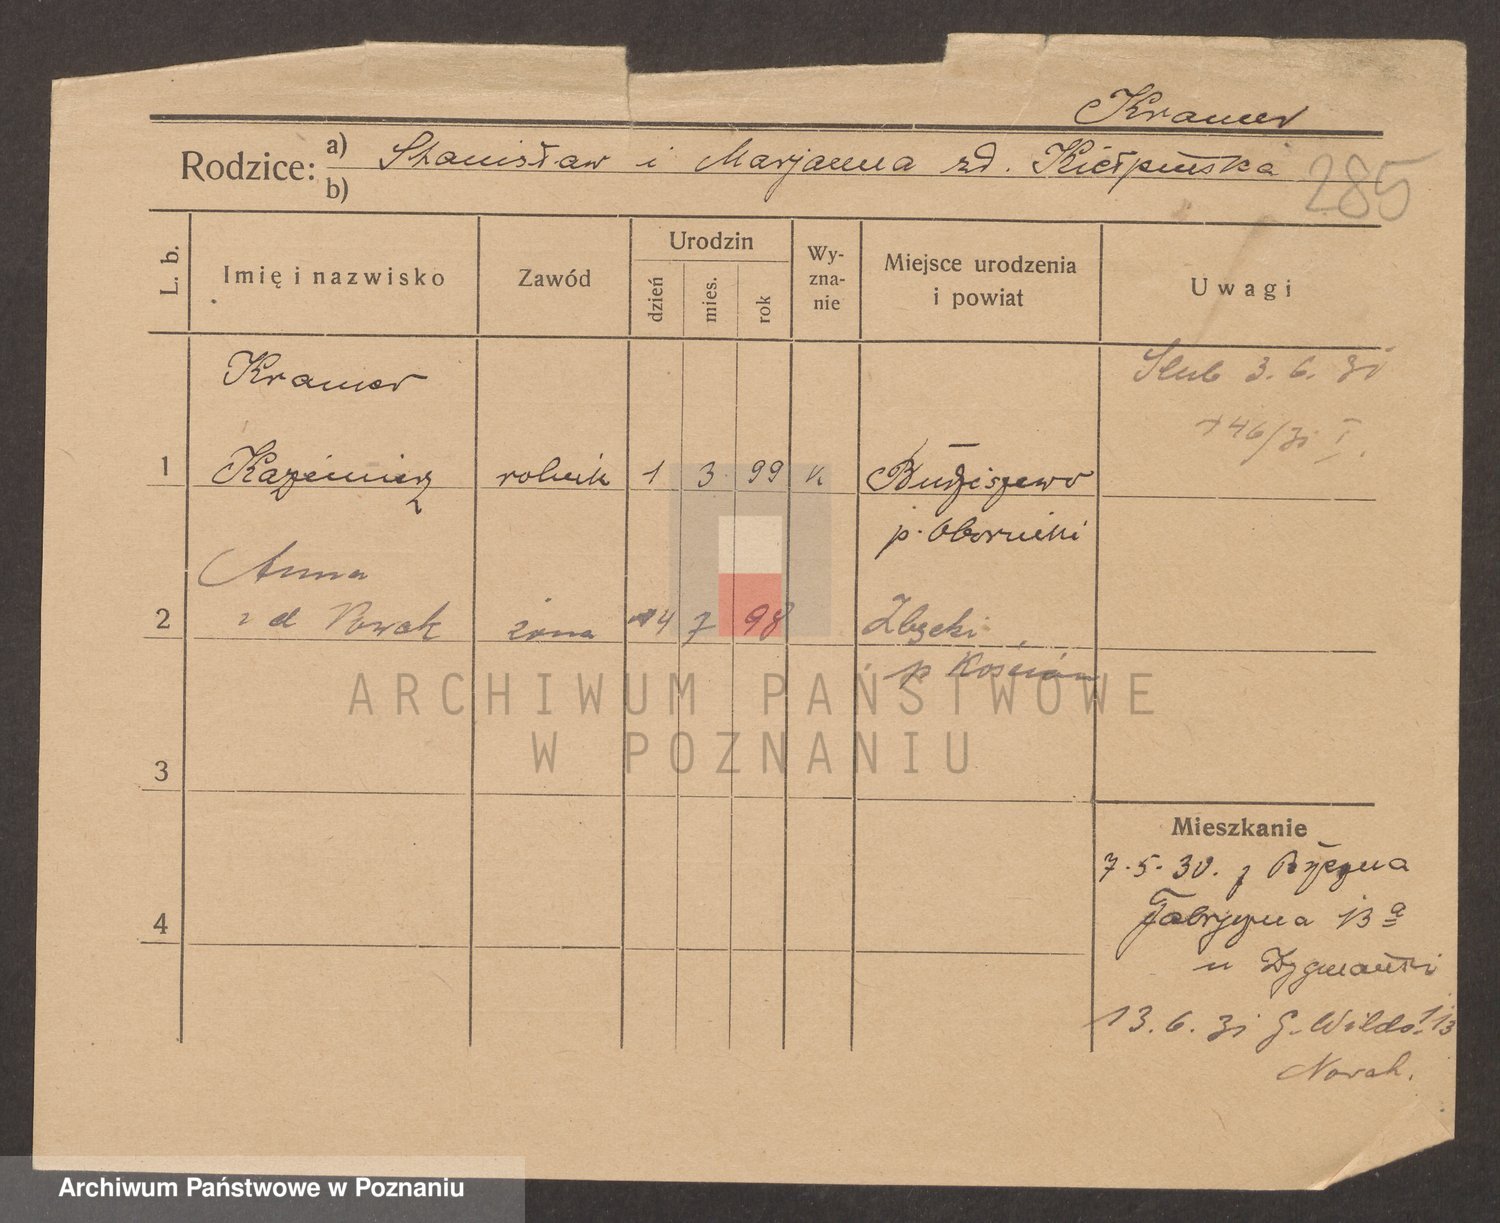 Kramer
Rodzice: a) Stanisław i Marjanna zd. Kiełpińska
b)
285
L. b.
Imię i nazwisko
Zawód
Urodzin
dzień
mies.
rok
Wy-
zna-
nie
Miejsce urodzenia
i powiat
Uwagi
Kramer
Ślub 3. 6. 31
146/31 I.
1 Kazimierz rolnik 1 3 99 k Budziszewo
p. Obornicki
Anna
2 zd Nowak żona 14 7 98 Zbęchi
p Kościan
ARCHIWUM PAŃSTWOWE
W POZNANIU
3
Mieszkanie
7.5.30. z
4
Fabryczna 13 a
u Zygmański
13. 6. 31 G. Wilda 113
Nowak.
Archiwum Państwowe w Poznaniu